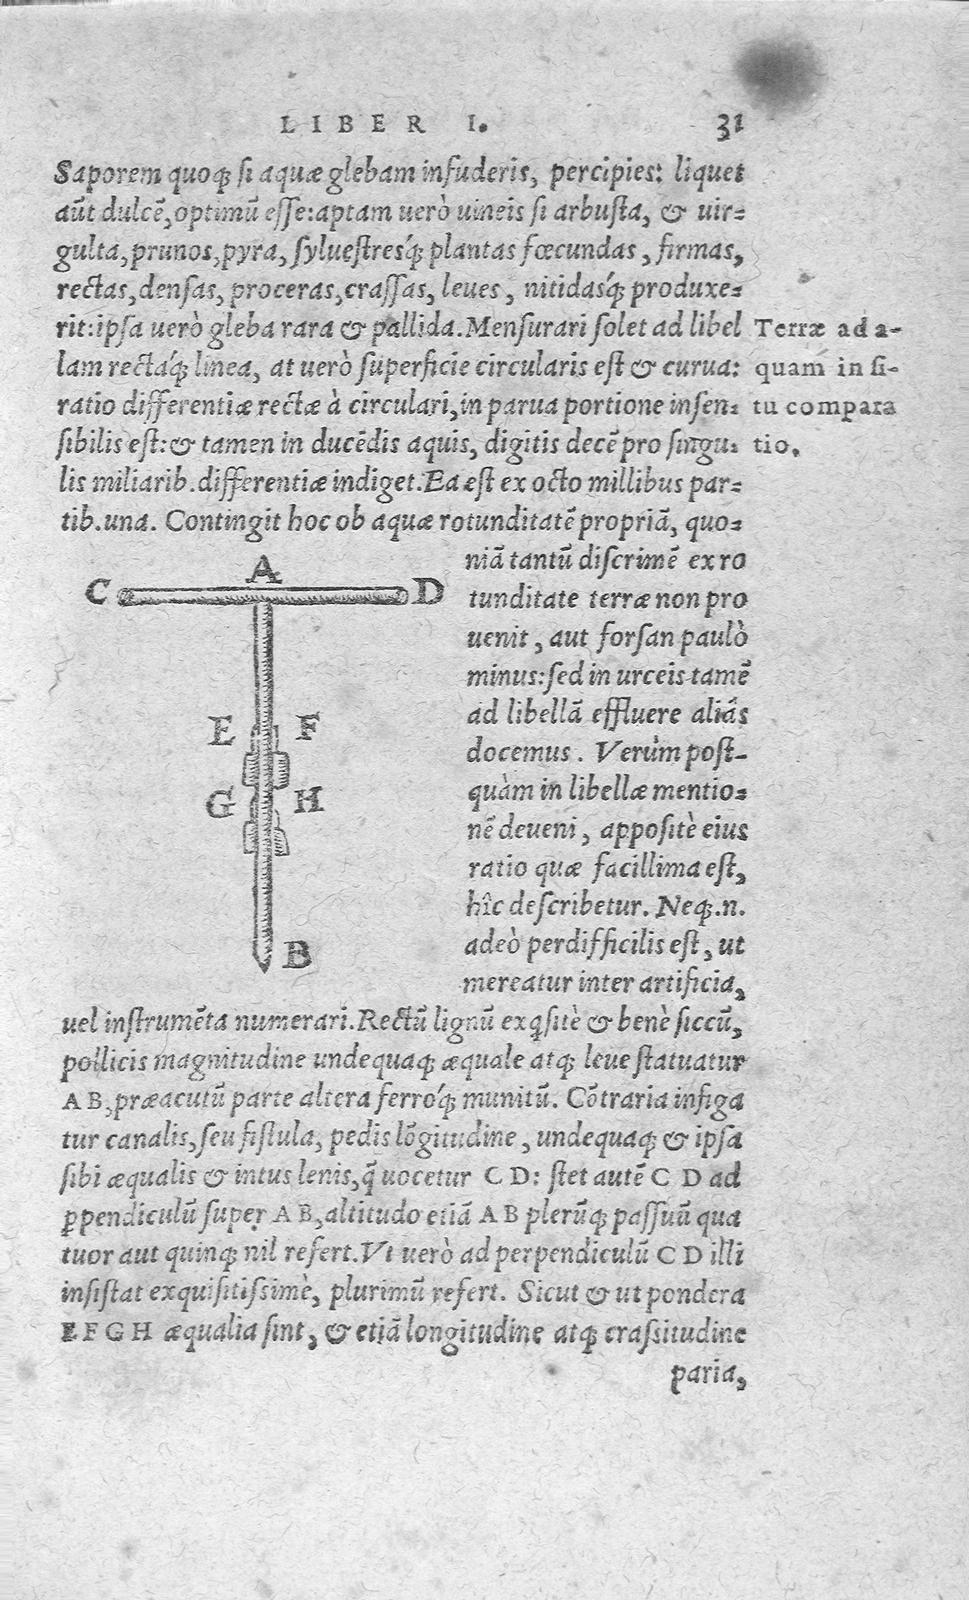 LIBER I. 31
Saporem quoqꝫ si aquæ glebam infuderis, percipies: liquet
aũt dulcẽ, optimũ esse: aptam uerò uineis si arbusta, & uir=
gulta, prunos, pyra, syluestresq́ꝫ plantas fœcundas, firmas,
rectas, densas, proceras, crassas, leues, nitidasq́ꝫ produxe=
rit: ipsa uerò gleba rara & pallida. Mensurari solet ad libel
lam rectaq́ꝫ linea, at uerò superficie circularis est & curua:
ratio differentiæ rectæ à circulari, in parua portione insen=
sibilis est: & tamen in ducẽdis aquis, digitis decẽ pro singu=
lis miliarib. differentiæ indiget. Ea est ex octo millibus par=
tib. una. Contingit hoc ob aquæ rotunditatẽ propriã, quo=
Terræ ad a-
quam in si-
tu compara
tio.
niã tantũ discrimẽ ex ro
tunditate terræ non pro
uenit, aut forsan paulò
minus: sed in urceis tamẽ
ad libellã effluere aliâs
docemus. Verùm post-
quàm in libellæ mentio=
nẽ deueni, appositè eius
ratio quæ facillima est,
hîc describetur. Neqꝫ .n.
adeò perdifficilis est, ut
mereatur inter artificia,
A
C D
E F
G H
B
uel instrumẽta numerari. Rectũ lignũ exq̃sitè & benè siccũ,
pollicis magnitudine undequaqꝫ æquale atqꝫ leue statuatur
AB, præacutũ parte altera ferroq́ꝫ munitũ. Cõtraria infiga
tur canalis, seu fistula, pedis lõgitudine, undequaqꝫ & ipsa
sibi æqualis & intus lenis, q̃ uocetur CD: stet autẽ CD ad
ꝑpendiculũ super AB, altitudo etiã AB plerũqꝫ passuũ qua
tuor aut quinqꝫ nil refert. Vt uerò ad perpendiculũ CD illi
insistat exquisitissimè, plurimũ refert. Sicut & ut pondera
EFGH æqualia sint, & etiã longitudine atqꝫ crassitudine
paria,